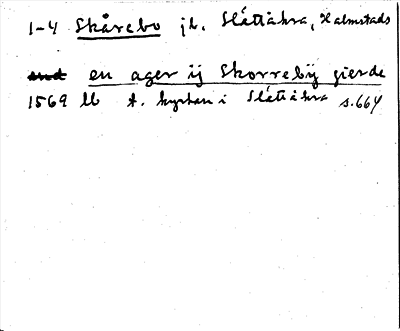 1-4 Skårebo jb. Slättåkra, Halmstads
en ager ij Skorrebÿ gierde
1569 lb t. kyrkan i Slättåkra s.664